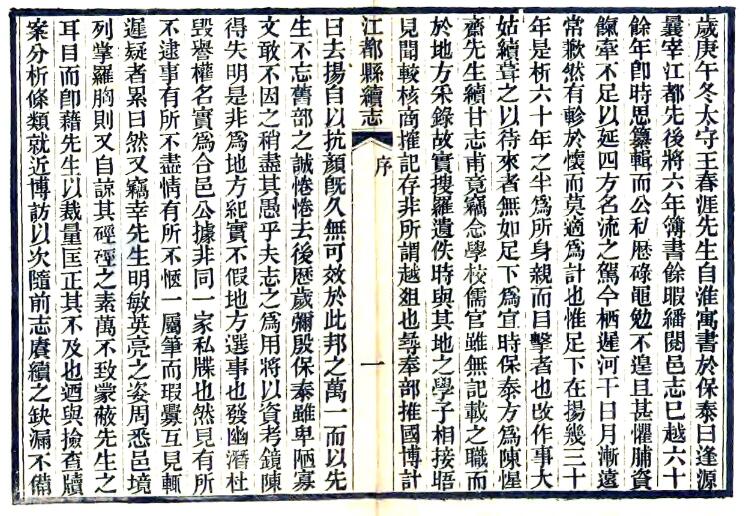 歲庚午冬太守王春涯先生自淮寓書於保泰曰逢源
曩宰江都先後將六年簿書餘暇繙閱邑志已越六十
餘年卽時思纂輯而公私歷碌黽勉不遑且甚懼脯資
餼牽不足以延四方名流之駕今栖遲河干日月漸遠
常歉然有軫於懷而莫適爲計也惟足下在揚幾三十
年是析六十年之半爲所身親而目擊者也改作事大
姑續葺之以待來者無如足下爲宜時保泰方爲陳惺
齋先生續甘志甫竟竊念學校儒官雖無記載之職而
於地方采錄故實搜羅遺佚時與其地之學子相接晤
見聞較核商搉記存非所謂越俎也尋奉部推國博計
江都縣續志
序
一
日去揚自以抗顏旣久無可效於此邦之萬一而以先
生不忘舊部之誠惓惓去後歷歲彌殷保泰雖卑陋寡
文敢不因之稍盡其愚乎夫志之爲用將以資考鏡陳
得失明是非爲地方紀實不假地方選事也發幽潛杜
毀譽權名實爲合邑公據非同一家私牒也然見有所
不逮事有所不盡情有所不愜一屬筆而瑕釁互見輒
遲疑者累日然又竊幸先生明敏英亮之姿周悉邑境
列掌羅胸則又自諒其硜硜之素萬不致蒙蔽先生之
耳目而卽藉先生以裁量匡正其不及也迺與撿查牘
案分析條類就近博訪以次隨前志賡續之缺漏不備